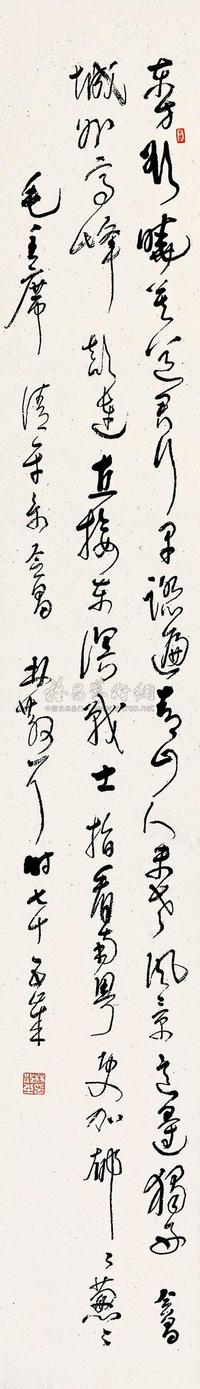 东方欲晓莫道君行早踏遍青山人未老风景这边独好会昌
城外高峰颠连直接东溟战士指看南粤更加郁〻葱〻
毛主席 清平乐会昌 林散耳 时七十五岁